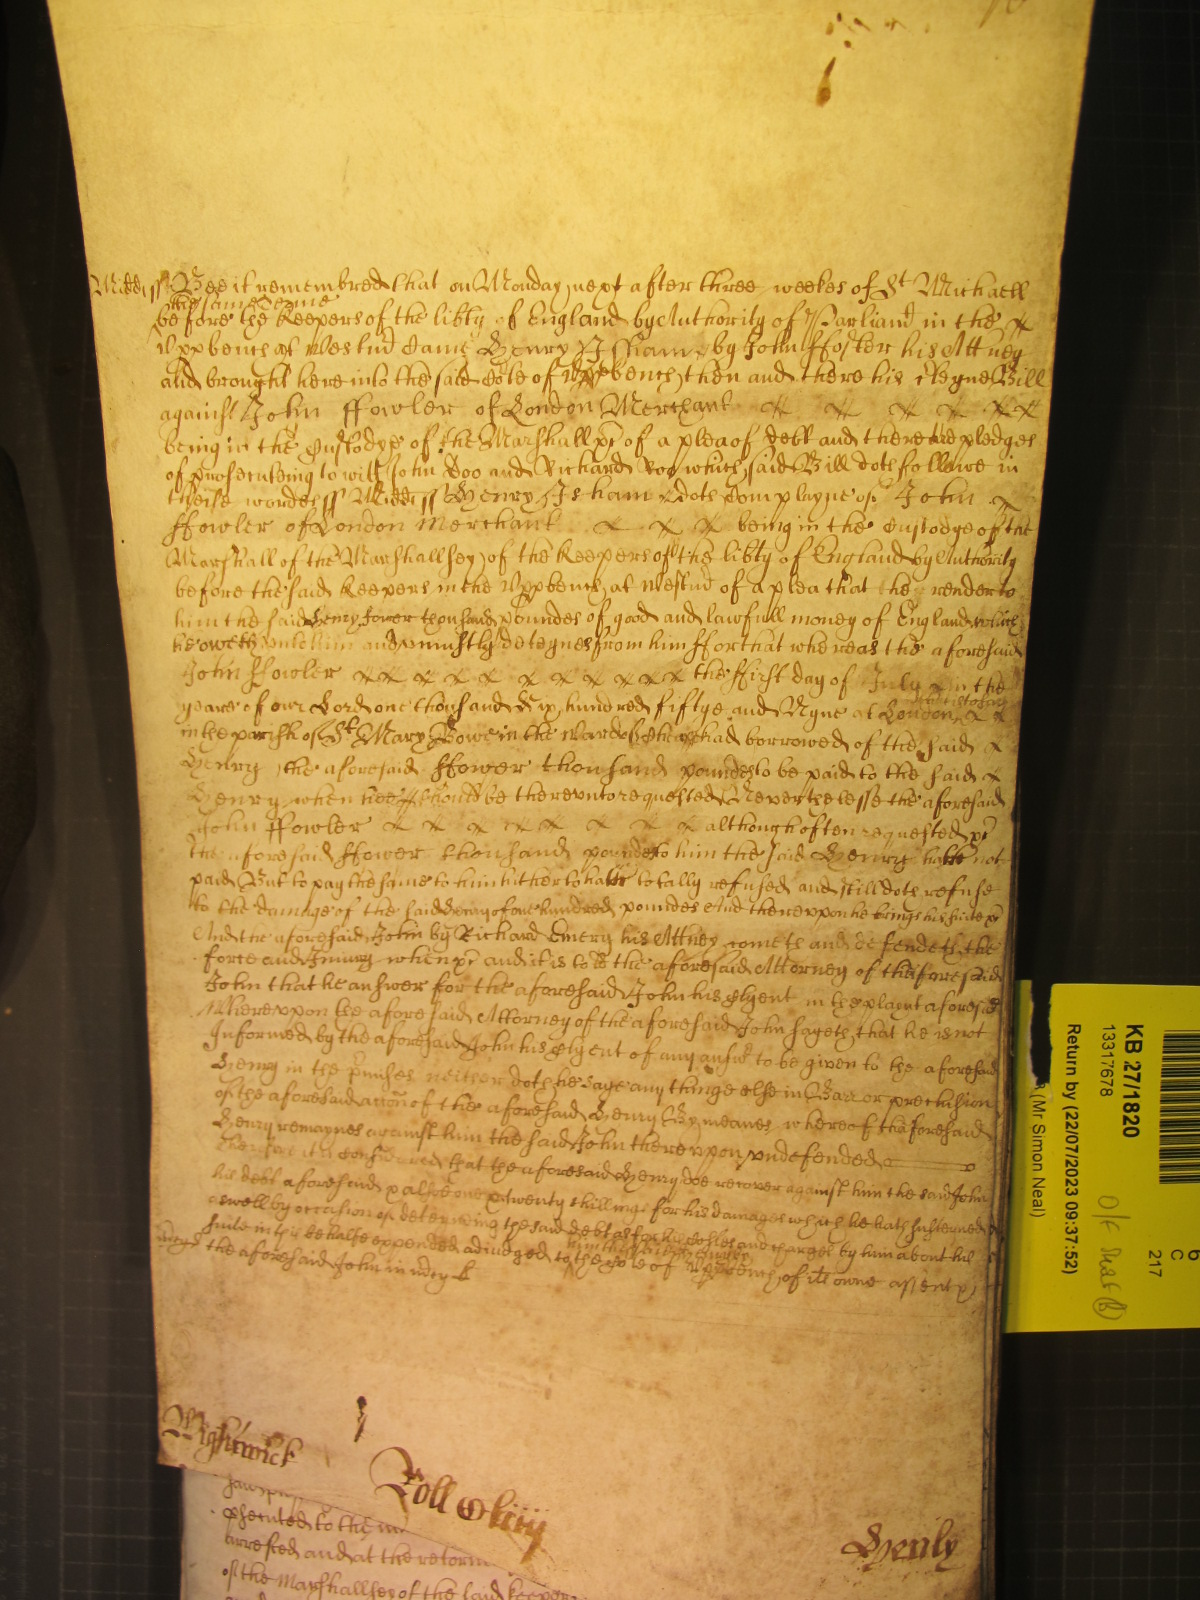 Midd ss Bee it remembred that on Monday next after three weekes of St Michaell
this same Terme
before the Keepers of the libty of England by Authority of Parliamt in the x
Uppbench at Westmr came Henry Isham by John Foster his Attney
and brought here into the said Cote of Uppbench then and there his certeyne Bill
against John ffowler of London Merchant x x x x x x
being in the Custodye of the Marshall &c of a plea of debt and there are pledges
of prosecuteing to witt John Doo and Richard Roo which said Bill doth followe in
theise wordes ss Midd ss Henry Isham doth Complayne of John x
ffowler of London Merchant x x x being in the Custodye of the
Marshall of the Marshallsey of the Keepers of the libty of England by Authority
before the said Keepers in the Uppbench at Westmr of a plea that he render to
him the said Henry fower thousand poundes of good and lawfull money of England which
he oweth unto him and uniustly deteynes from him ffor that whereas the aforesaid
John ffowler x x x x x x x x x x the ffirst day of July in the
yeare of our Lord one thousand Six hundred fiftye and Nyne at London x x
in the parish of St Mary Bowe in the Ward of Cheap had borrowed of the said x
Henry the aforesaid ffower thousand poundes to be paid to the said x
Henry when hee should be thereunto requested Neverthelesse the aforesaid
John ffowler x x x x x x x x although often requested &c
the aforesaid ffower thousand poundes to him the said Henry hath not
paid But to pay the same to him hitherto hath totally refused and still doth refuse
to the damage of the said Henry of one hundred poundes And thereupon he brings his suite &c
And the aforesaid John by Richard Emery his Attney cometh and defendeth the
force and Iniury when &c and it is to the aforesaid Attorney of the aforesaid
John that he answer for the aforesaid John his Clyent in the plaint aforesaid
Whereupon the aforesaid Attorney of the aforesaid John sayeth that he is not
Informed by the aforesaid John his Clyent of any answr to be given to the aforesaid
Henry in the prmises neither doth he saye any thinge else in Barr or preclusion
of the aforesaid accon of the aforesaid Henry By meanes whereof the aforesaid
Henry remaynes against him the said John thereupon undefended
Therefore it is Considered that the aforesaid Henry doe recover against him the said John
his debt aforesaid & alsoe one & twenty shillings for his damages which he hath susteyned
aswell by occasion of deteyneing the said debt as for his Costes and charges by him about his
suite in this behalfe expended adiudged to the said Henry
by the Cote of Uppbench of its owne assent &c
the aforesaid John in mcy &c
Wightwick
Roll
Henly
presented to the
arrested and at the retorn
of the Marshallsey of the said keepers
KB 27/1820
13317678
Return by (22/07/2023 09:37:52)
(Mr Simon Neal)
6
C
217